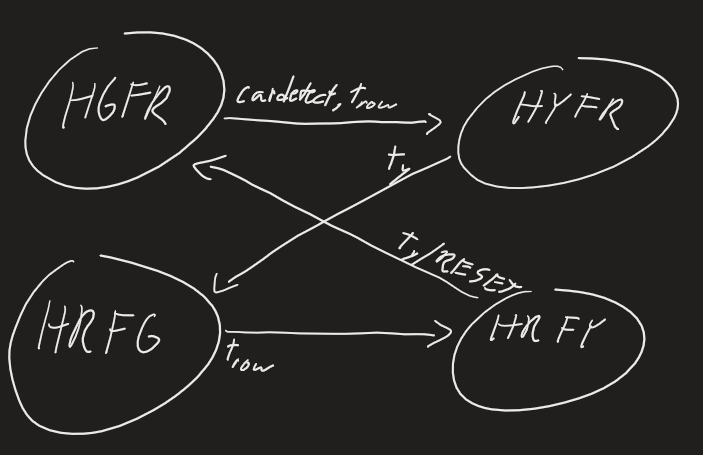 HGFR
cardetect, trow
HYFR
ty
ty/RESET
HRFG
trow
HRFY